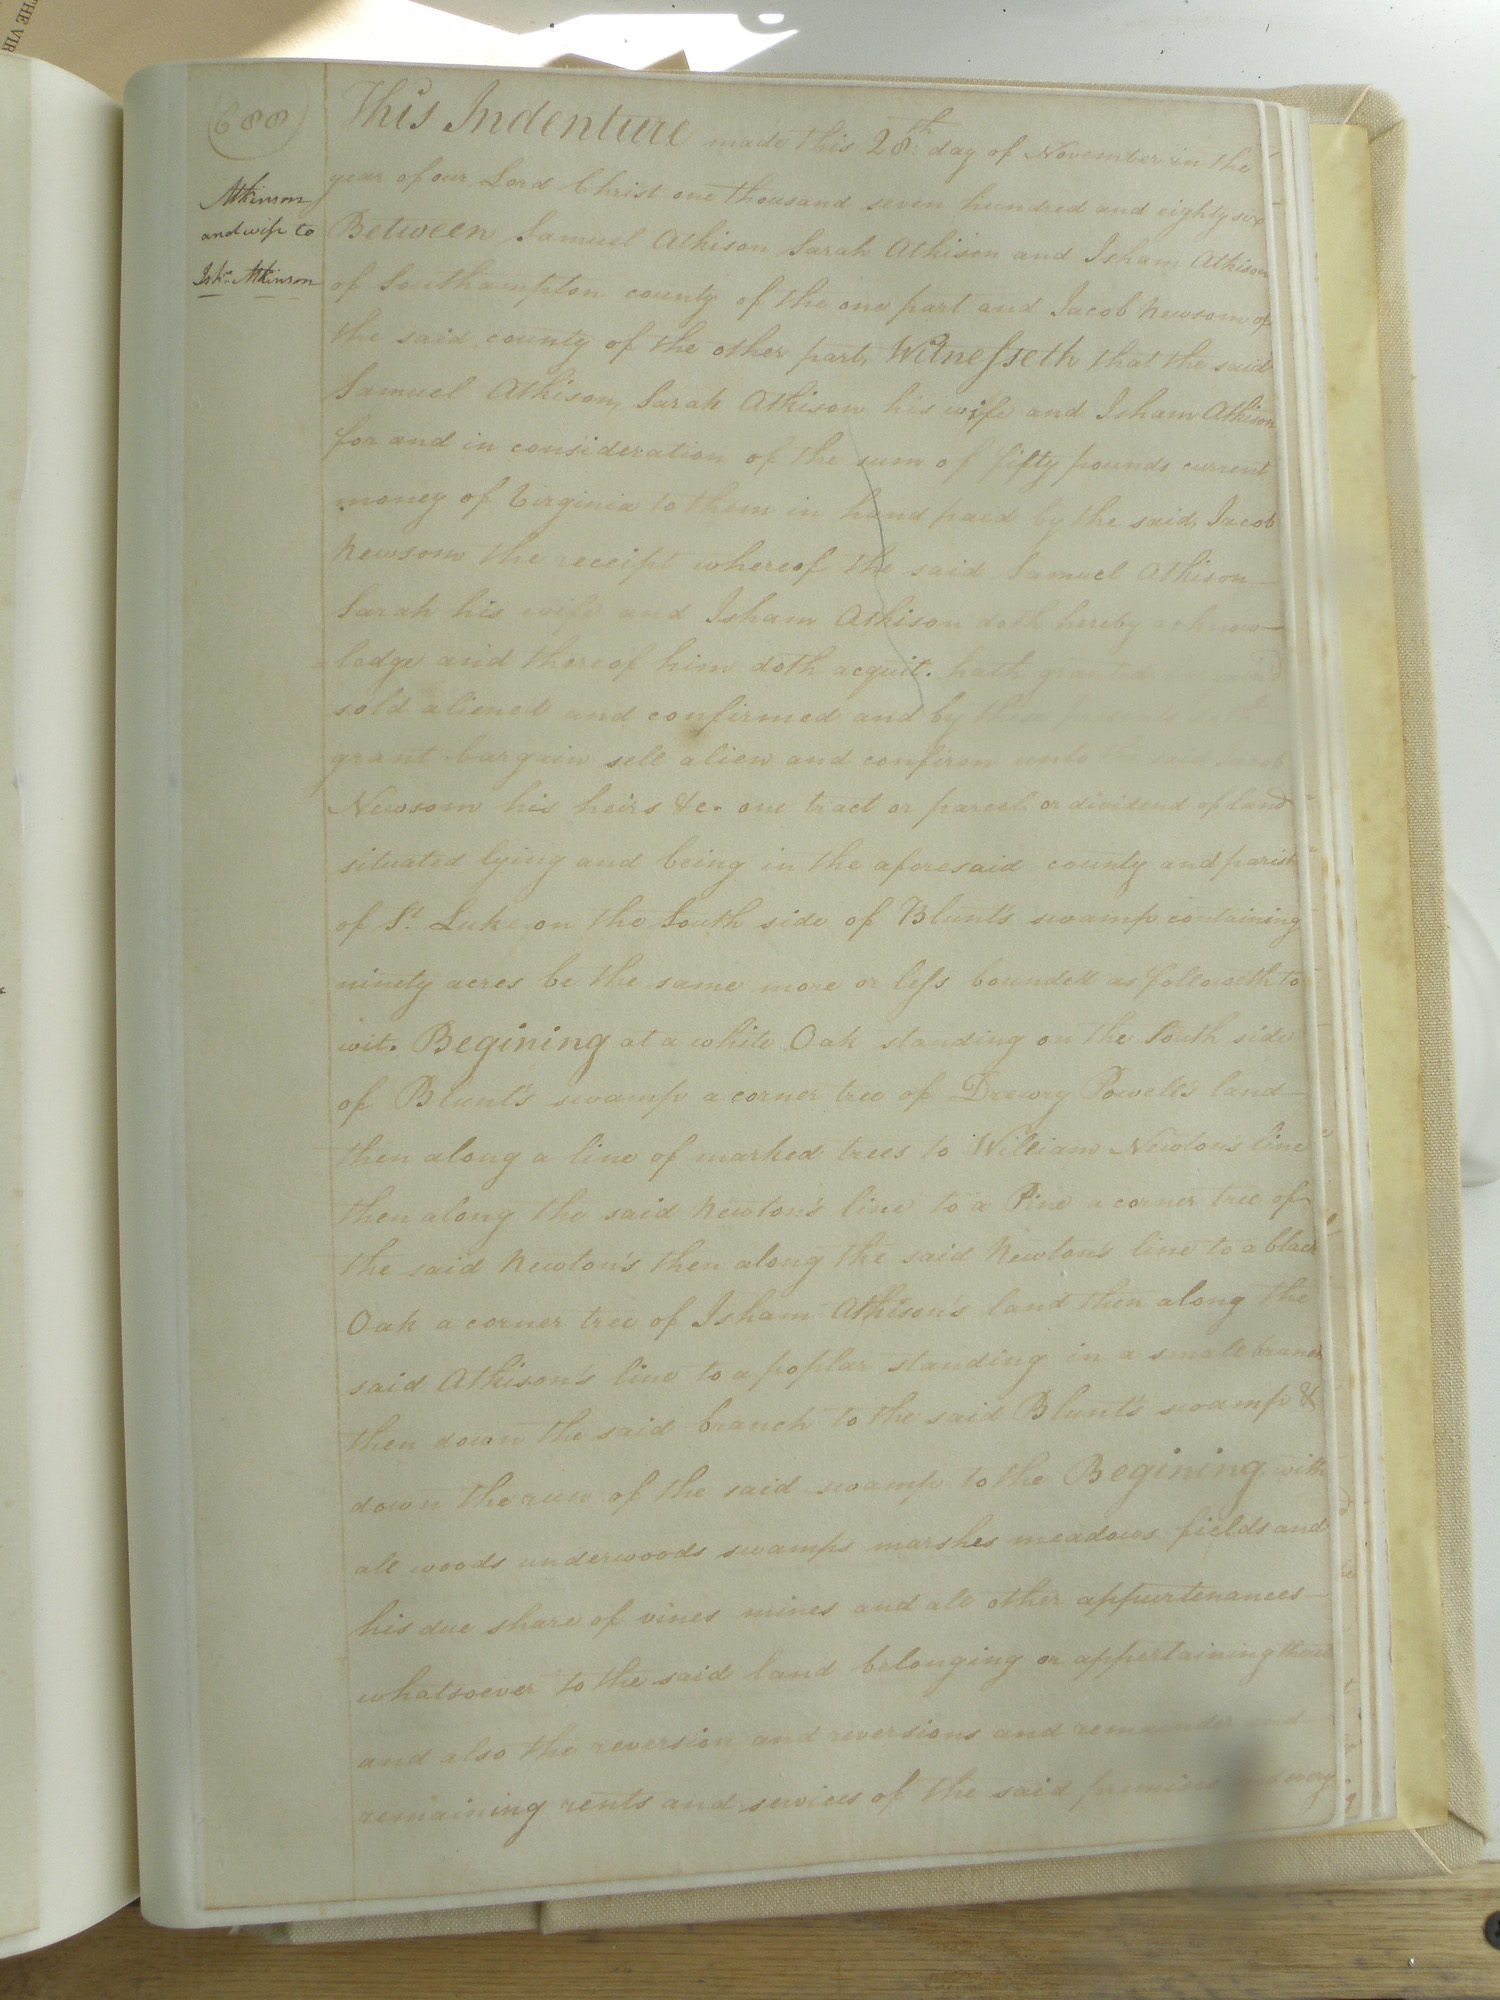 THE VIR
(688)
Atkinson
and wife to
Ish.m Atkinson
This Indenture made this 28th day of November in the
year of our Lord Christ one thousand seven hundred and eighty six
Between Samuel Atkison Sarah Atkison and Isham Atkison
of Southampton county of the one part and Jacob Newsom of
the said county of the other part, Witnesseth that the said
Samuel Atkison, Sarah Atkison his wife and Isham Atkison
for and in consideration of the sum of fifty pounds current
money of Virginia to them in hand paid by the said, Jacob
Newsom the receipt whereof the said Samuel Atkison
Sarah his wife and Isham Atkison doth hereby acknow-
=ledge and thereof him doth acquit. hath granted
sold aliened and confirmed and by these presents
grant bargain sell alien and confirm unto the said Jacob
Newsom his heirs &c. one tract or parcel or dividend of land
situated lying and being in the aforesaid county and parish
of St. Luke on the South side of Blunt's swamp containing
ninety acres be the same more or less bounded as followeth to
wit. Begining at a white Oak standing on the South side
of Blunt's swamp a corner tree of Drewry Powell's land
then along a line of marked trees to William Newtons line
then along the said Newton's line to a Pine a corner tree of
the said Newton's then along the said Newton's line to a black
Oak a corner tree of Isham Atkison's land then along the
said Atkison's line to a poplar standing in a small branch
then down the said branch to the said Blunt's swamp &
down the run of the said swamp to the Begining with
all woods underwoods swamps marshes meadows fields and
his due share of vines mines and all other appurtenances
whatsoever to the said land belonging or appertaining
and also the reversion and reversions and remainder and
remaining rents and services of the said premises and every